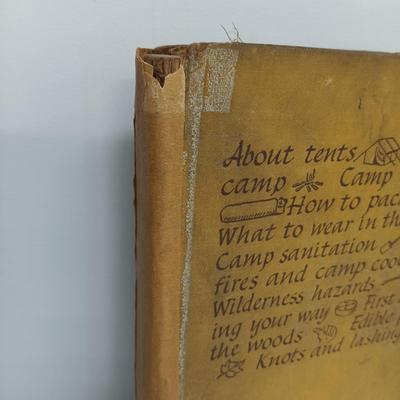 About tents
camp Camp
How to pac
What to wear in th
Camp sanitation
fires and camp coo
Wilderness hazards
ing your way First
the woods Edible
Knots and lashing